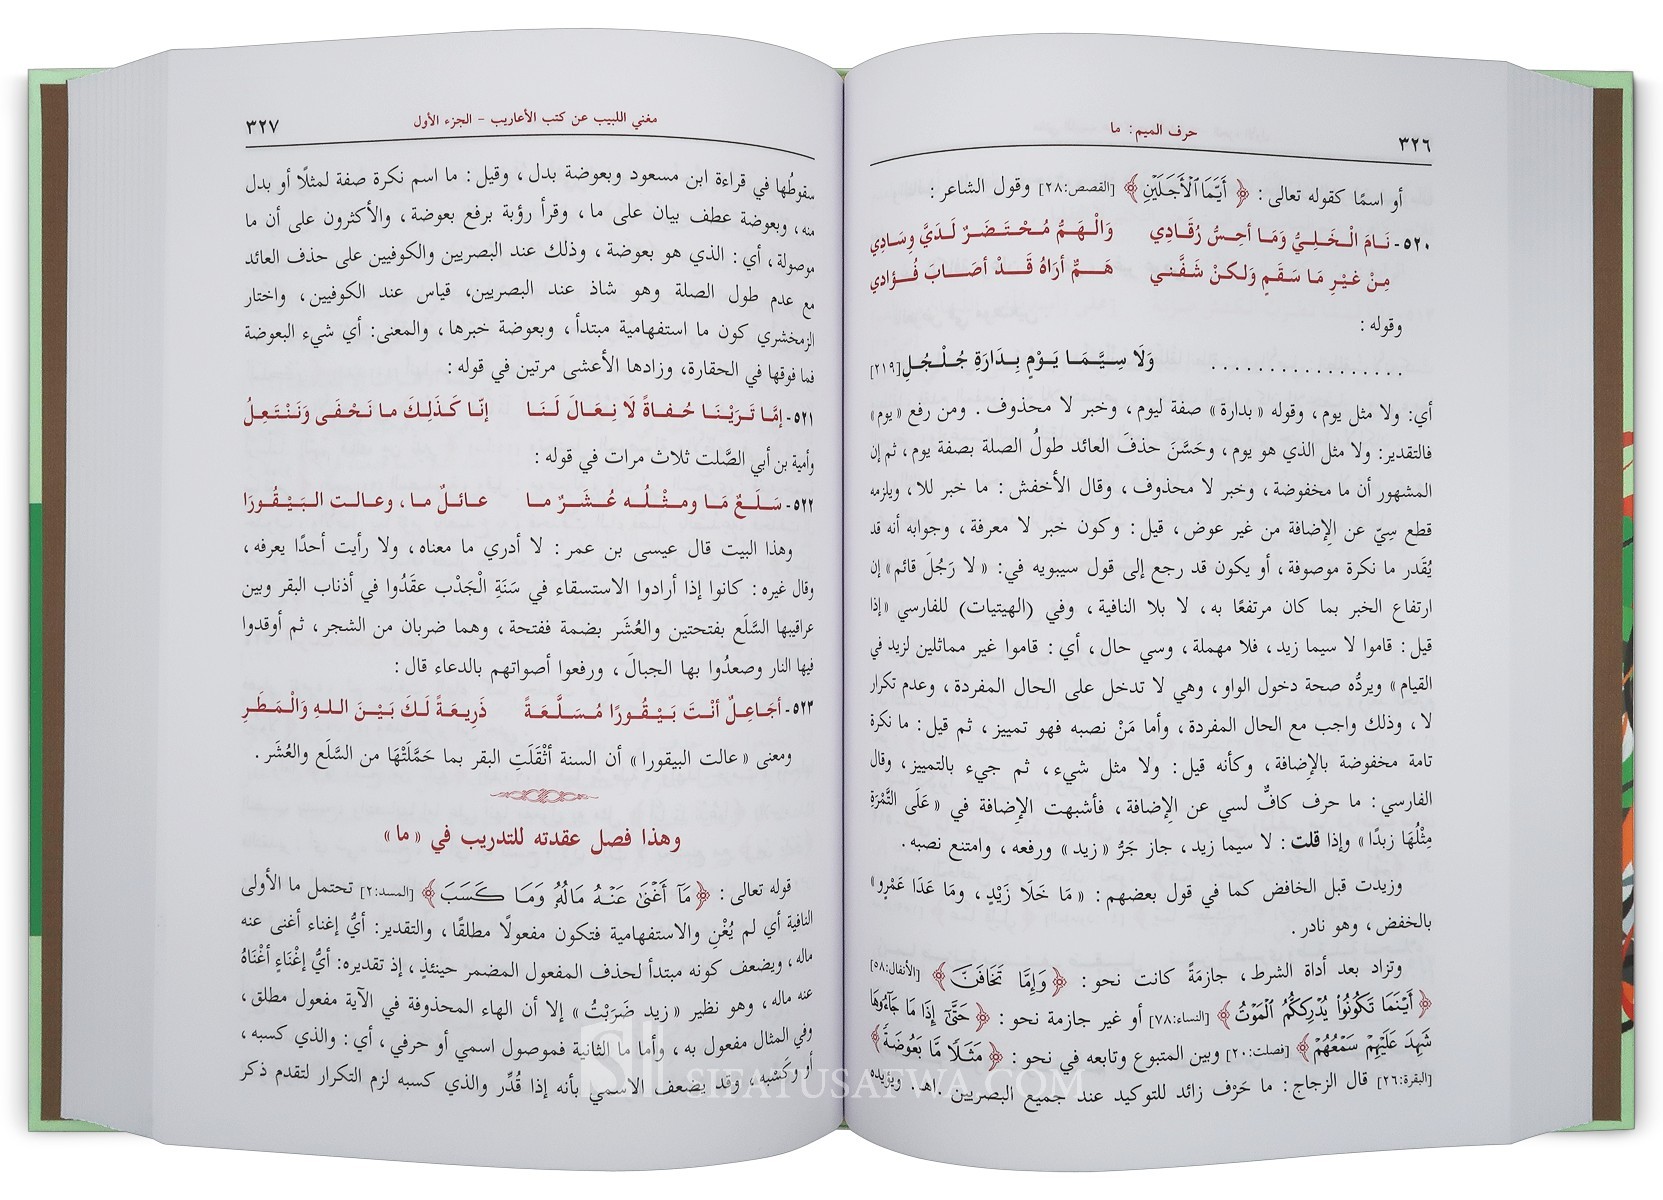 حرف الميم: ما
٣٢٦
أو اسمًا كقوله تعالى: ﴿أَيَّمَا ٱلْأَجَلَيْنِ﴾ [القصص:٢٨] وقول الشاعر:
٥٢٠- نَامَ الْخَلِيُّ وَمَا أحِسُّ رُقَادِي وَالْهَمُّ مُحْتَضَرٌ لَدَيَّ وِسَادِي
مِنْ غَيْرِ مَا سَقَمٍ وَلكنْ شَفَّني هَمٌّ أرَاهُ قَدْ أصَابَ فُؤادي
وقوله:
................. وَلَا سِيَّمَا يَوْمٍ بِدَارَةِ جُلْجُلِ[٢١٩]
أي: ولا مثل يوم، وقوله «بدارة» صفة ليوم، وخبر لا محذوف. ومن رفع «يوم»
فالتقدير: ولا مثل الذي هو يوم، وحَسَّنَ حذفَ العائد طولُ الصلة بصفة يوم، ثم إن
المشهور أن ما مخفوضة، وخبر لا محذوف، وقال الأخفش: ما خبر للا، ويلزمه
قطع سِيّ عن الإضافة من غير عوض، قيل: وكون خبر لا معرفة، وجوابه أنه قد
يُقَدر ما نكرة موصوفة، أو يكون قد رجع إلى قول سيبويه في: «لا رَجُلَ قائم» إن
ارتفاع الخبر بما كان مرتفعًا به، لا بلا النافية، وفي (الهيتيات) للفارسي «إذا
قيل: قاموا لا سيما زيد، فلا مهملة، وسي حال، أي: قاموا غير مماثلين لزيد في
القيام» ويردُّه صحة دخول الواو، وهي لا تدخل على الحال المفردة، وعدم تكرار
لا، وذلك واجب مع الحال المفردة، وأما مَنْ نصبه فهو تمييز، ثم قيل: ما نكرة
تامة مخفوضة بالإضافة، وكأنه قيل: ولا مثل شيء، ثم جيء بالتمييز، وقال
الفارسي: ما حرف كافٌّ لسي عن الإضافة، فأشبهت الإضافة في «عَلَى التَّمْرَةِ
مِثْلُهَا زبدًا» وإذا قلت: لا سيما زيد، جاز جَرُّ «زيد» ورفعه، وامتنع نصبه.
وزيدت قبل الخافض كما في قول بعضهم: «مَا خَلَا زَيْدٍ، ومَا عَدَا عَمْرٍو»
بالخفض، وهو نادر.
وتزاد بعد أداة الشرط، جازمَةً كانت نحو: ﴿وَإِمَّا تَخَافَنَّ﴾ [الأنفال:٥٨]
﴿أَيْنَمَا تَكُونُوا۟ يُدْرِككُّمُ ٱلْمَوْتُ﴾ [النساء:٧٨] أو غير جازمة نحو: ﴿حَتَّىٰٓ إِذَا مَا جَآءُوهَا
شَهِدَ عَلَيْهِمْ سَمْعُهُمْ﴾ [فصلت:٢٠] وبين المتبوع وتابعه في نحو: ﴿مَثَلًا مَّا بَعُوضَةً﴾
[البقرة:٢٦] قال الزجاج: ما حَرْف زائد للتوكيد عند جميع البصريين. اهـ. ويؤيده
مغني اللبيب عن كتب الأعاريب - الجزء الأول
٣٢٧
سقوطُها في قراءة ابن مسعود وبعوضة بدل، وقيل: ما اسم نكرة صفة لمثلًا أو بدل
منه، وبعوضة عطف بيان على ما، وقرأ رؤبة برفع بعوضة، والأكثرون على أن ما
موصولة، أي: الذي هو بعوضة، وذلك عند البصريين والكوفيين على حذف العائد
مع عدم طول الصلة وهو شاذ عند البصريين، قياس عند الكوفيين، واختار
الزمخشري كون ما استفهامية مبتدأ، وبعوضة خبرها، والمعنى: أي شيء البعوضة
فما فوقها في الحقارة، وزادها الأعشى مرتين في قوله:
٥٢١- إمَّا تَرَيْنَا حُفاةً لَا نِعَالَ لَنَا إنّا كَذَلِكَ ما نَحْفَى وَنَنْتَعِلُ
وأمية بن أبي الصَّلت ثلاث مرات في قوله:
٥٢٢- سَلَعٌ مَا ومثْلُه عُشَرٌ ما عائلٌ ما، وعالت البَيْقُورَا
وهذا البيت قال عيسى بن عمر: لا أدري ما معناه، ولا رأيت أحدًا يعرفه،
وقال غيره: كانوا إذا أرادوا الاستسقاء في سَنَةِ الْجَدْب عقَدُوا في أذناب البقر وبين
عراقيبها السَّلَع بفتحتين والعُشَر بضمة ففتحة، وهما ضربان من الشجر، ثم أوقدوا
فيها النار وصعدُوا بها الجبالَ، ورفعوا أصواتهم بالدعاء قال:
٥٢٣- أجَاعِلٌ أنْتَ بَيْقُورًا مُسَلَّعَةً ذَرِيعَةً لَكَ بَيْنَ اللهِ وَالْمَطَرِ
ومعنى «عالت البيقورا» أن السنة أثْقَلَتِ البقر بما حَمَّلَتْهَا من السَّلَع والعُشَر.
وهذا فصل عقدته للتدريب في «ما»
قوله تعالى: ﴿مَآ أَغْنَىٰ عَنْهُ مَالُهُۥ وَمَا كَسَبَ﴾ [المسد:٢] تحتمل ما الأولى
النافية أي لم يُغْنِ والاستفهامية فتكون مفعولًا مطلقًا، والتقدير: أيُّ إغناء أغنى عنه
ماله، ويضعف كونه مبتدأ لحذف المفعول المضمر حينئذٍ، إذ تقديره: أيُّ إغْناءٍ أغْنَاهُ
عنه ماله، وهو نظير «زيد ضَرَبْتُ» إلا أن الهاء المحذوفة في الآية مفعول مطلق،
وفي المثال مفعول به، وأما ما الثانية فموصول اسمي أو حرفي، أي: والذي كسبه،
أو وكَسْبه، وقد يضعف الاسمي بأنه إذا قُدِّر والذي كسبه لزم التكرار لتقدم ذكر
SIFATUSAFWA.COM